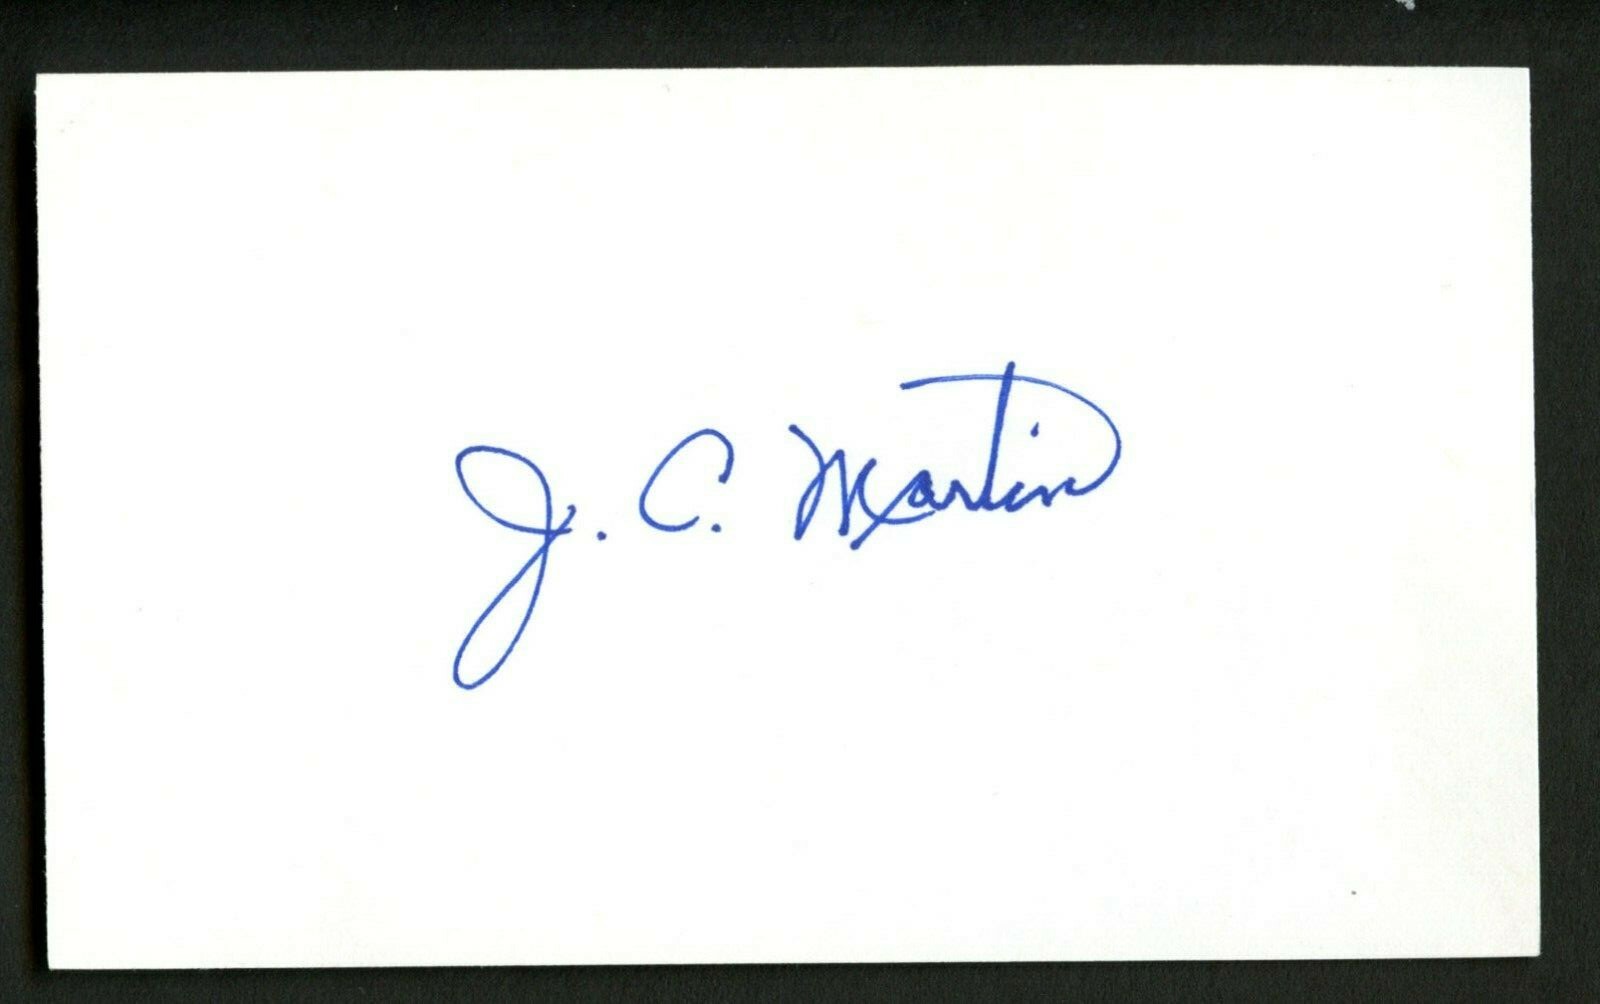 J. C. Martin